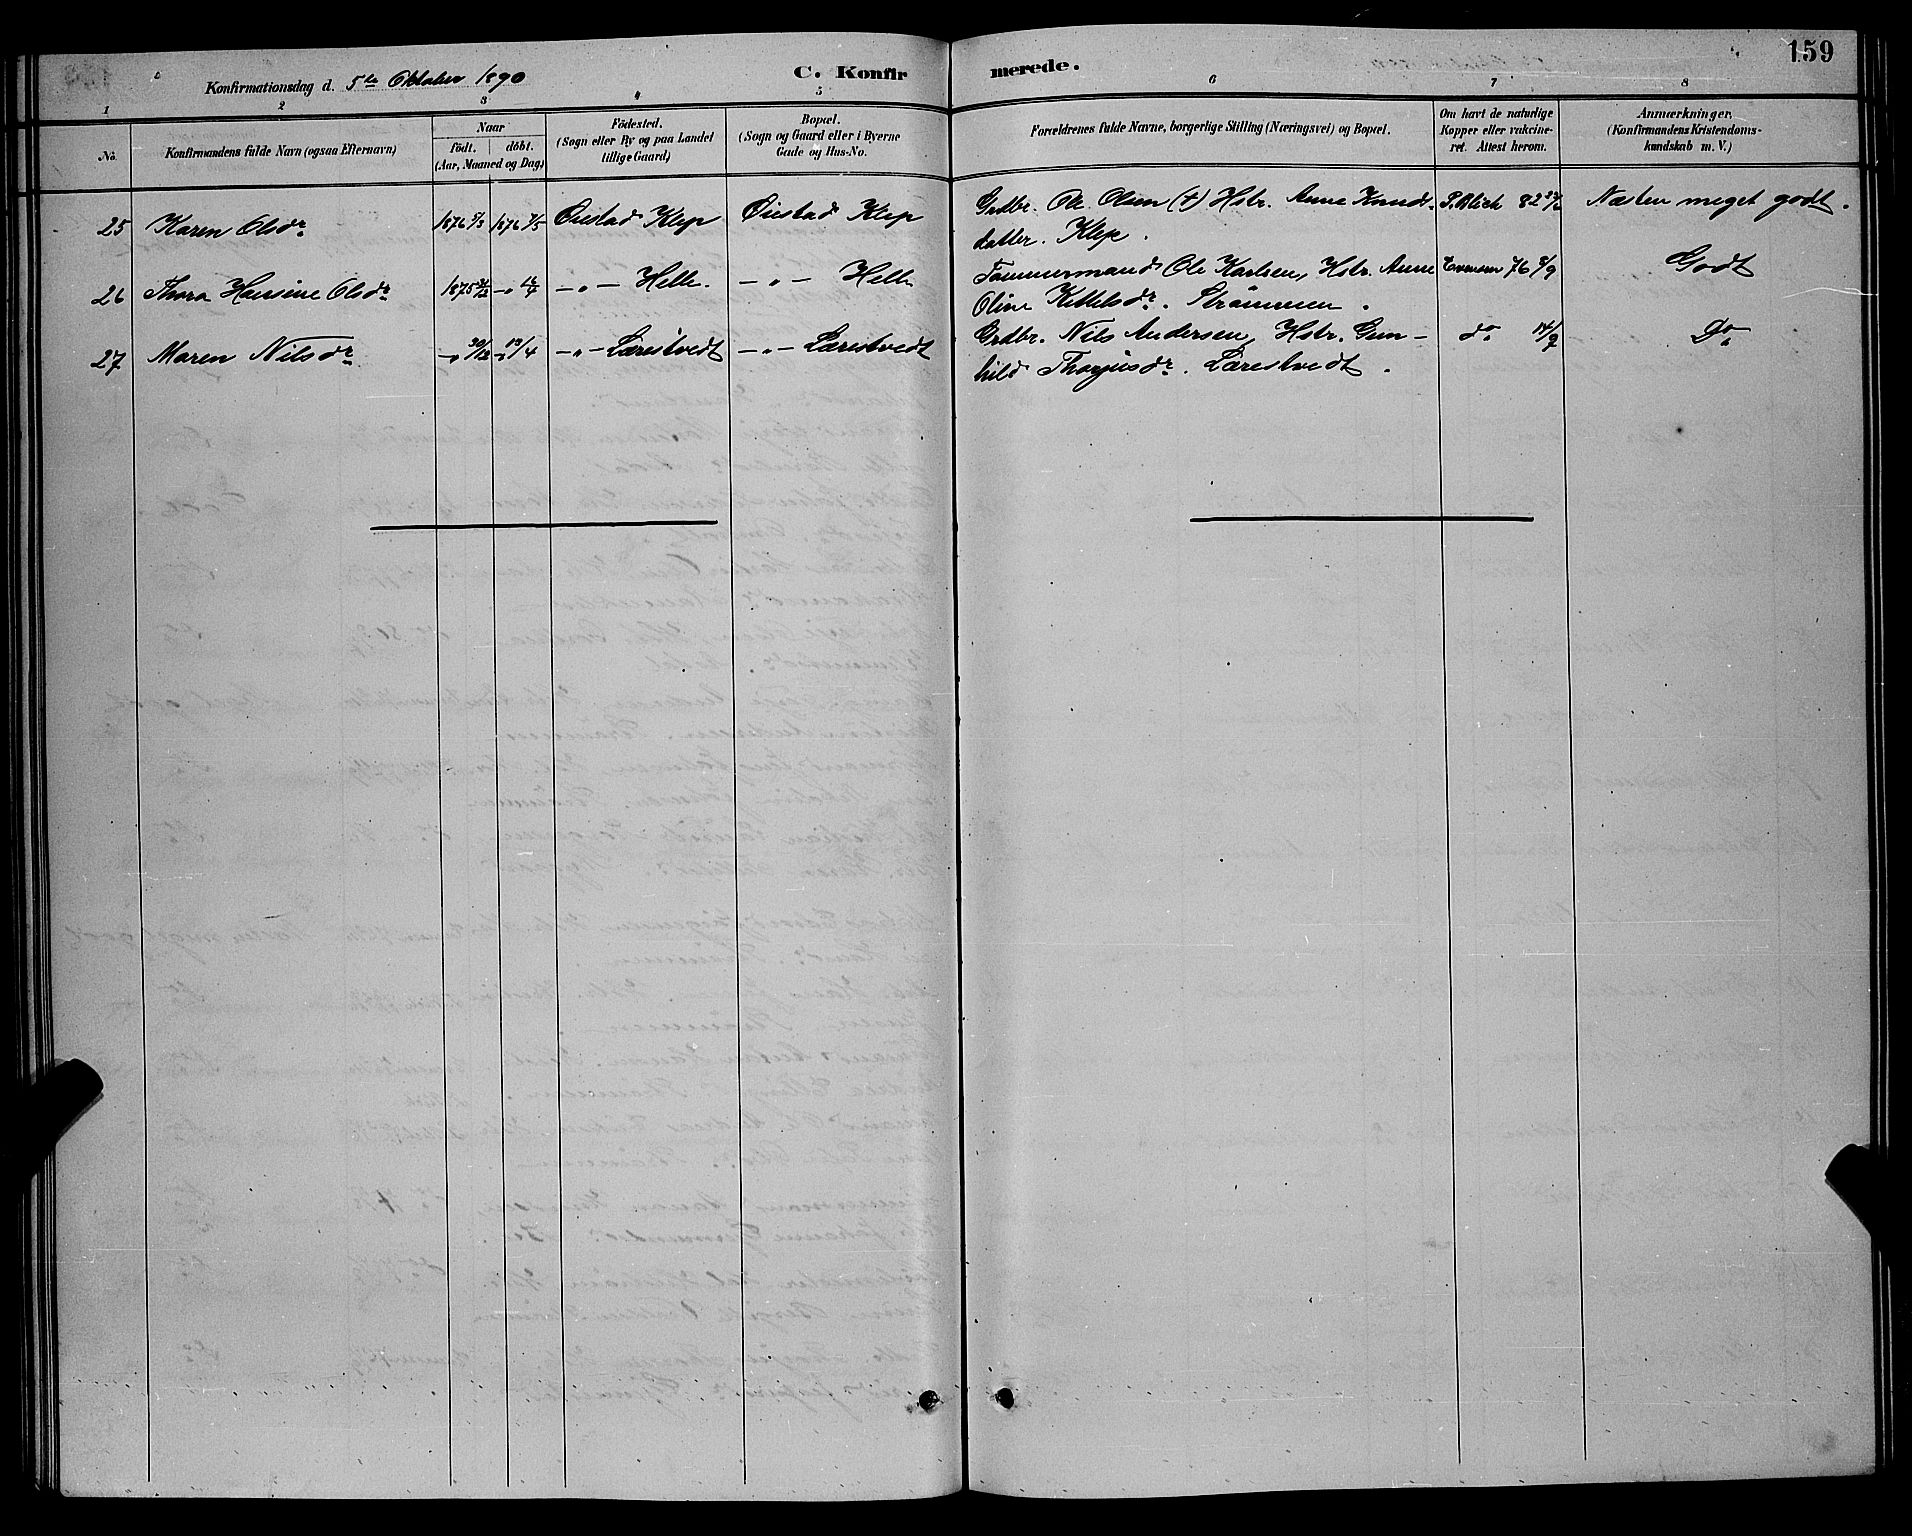 159
Konfirmationsdag d. 5te Oktober 1890
C. Konfirmerede.
1 2 3 4 5 6 7 8
No.
Konfirmandens fulde Navn (ogsaa Efternavn)
Naar
födt. döbt.
(Aar, Maaned og Dag)
Födested.
(Sogn eller By og paa Landet
tillige Gaard)
Bopæl.
(Sogn og Gaard eller i Byerne
Gade og Hus-No.
Forældrenes fulde Navne, borgerlige Stilling (Næringsvei) og Bopæl.
Om havt de naturlige
Kopper eller vakcine-
ret. Attest herom.
Anmærkninger.
(Konfirmandens Kristendoms-
kundskab m. V.)
25 Karen Olsdr 1876 5/3 1876 7/5 Øiestad Klep Øiestad Klep Grdbr. Ole Olsen (†) Hstr. Anne Knuds- P. Blich 82 Næsten meget godt.
datter. Klep.
26 Thora Hansine Olsdr 1875 31/12 -"- -"- Helle. -"- Helle Tømmermand Ole Karlsen, Hstr. Anne Evensen 76 Godt
Oline Kittelsdr. Strømmen.
27 Maren Nilsdr -"- 30/12 -"- 17/4 -"- Lærestvedt -"- Lærestvedt Grdbr. Nils Andersen, Hstr. Gun- do 14/9 Do
hild Thorjusdr. Lærestvedt.